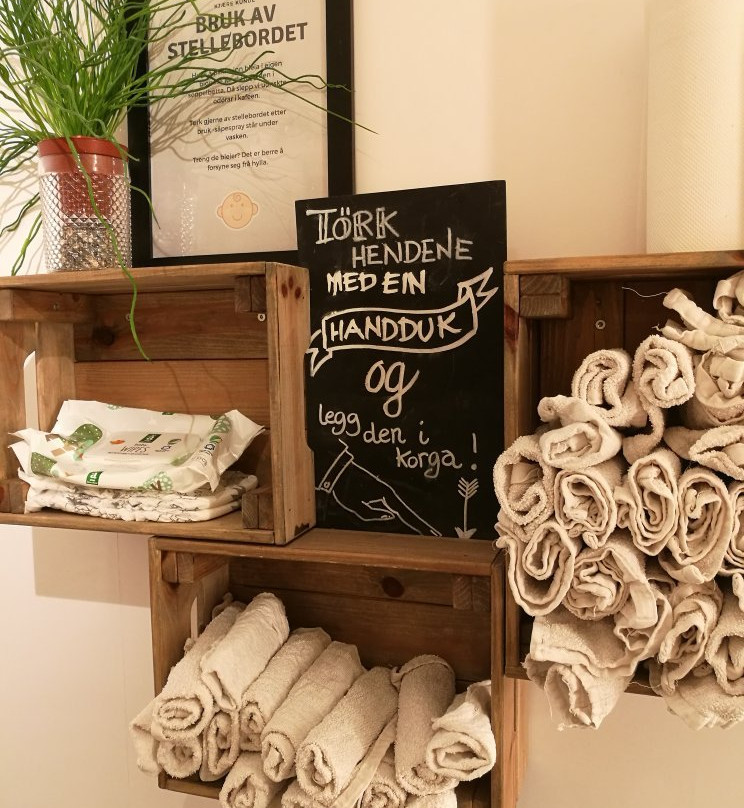 KJÆRE KUNDE
BRUK AV
STELLEBORDET
bleia i eigen
i
søppelbøtta. Då slepp vi
odørar i kafeen.
Tørk gjerne av stellebordet etter
bruk -såpespray står under
vasken.
Treng du bleier? Det er berre å
forsyne seg frå hylla.
TÖRK
HENDENE
MED EIN
HANDDUK
og
legg den i
korga!